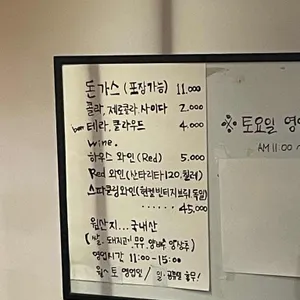 돈가스 (포장가능) 11.000
콜라, 제로콜라, 사이다 2.000
beer 테라, 클라우드 4.000
wine.
하우스 와인 (Red) 5.000
Red 와인 (산타리타120, 칠레)
스파클링와인 (헨켈 빈티지브뤼, 독일)
...... 45.000
원산지... 국내산
(쌀, 돼지고기, 우유, 양배추, 양상추)
영업시간 11:00-15:00
월~토 영업일 / 일·공휴일 휴무!
※ 토요일 영
AM 11:00